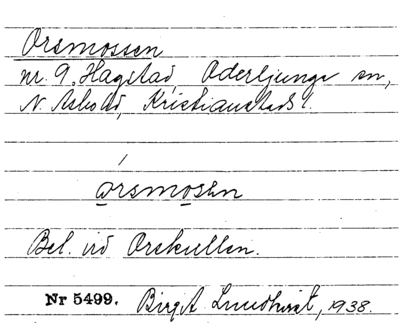 Orsmossen
nr. 9. Hagstad, Oderljunga sn,
N. Åsbo hd, Kristianstads l.
orsmosen
Bel. vid Orekullen.
Nr 5499. Birgit Lundqvist, 1938.